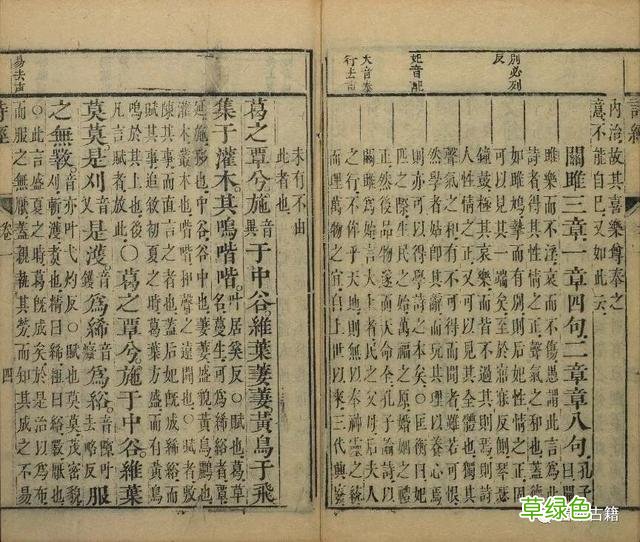 詩經
別必列反
妃音配
大音泰
行去聲
內治故其喜樂尊奉之
意不能自已又如此云
關雎三章一章四句二章章八句孔子曰關
雎樂而不淫哀而不傷愚謂此言為此
詩者得其性情之正聲氣之和也蓋德
如雎鳩摯而有別則后妃性情之正固
可以見其一端矣至於寤寐反側琴瑟
鐘鼓極其哀樂而皆不過其則焉則詩
人性情之正又可以見其全體也獨其
聲氣之和有不可得而聞者雖若可恨
然學者姑即其辭而玩其理以養心焉
則亦可以得學詩之本矣○匡衡曰妃
匹之際生民之始萬福之原婚姻之禮
正然後品物遂而天命全孔子論詩以
關雎為始言大上者民之父母后夫人
之行不侔乎天地則無以奉神靈之統
而理萬物之宜自上世以來三代興廢
易去声
未有不由
此者也
葛之覃兮施音異于中谷維葉萋萋黃鳥于飛
集于灌木其鳴喈喈叶居奚反○賦也葛草名蔓生可為絺綌者覃
延施移也中谷谷中也萋萋盛貌黃鳥鸝也
灌木叢木也喈喈和聲之遠聞也○賦者敷
陳其事而直言之者也蓋后妃既成絺綌而
賦其事追敘初夏之時葛葉方盛而有黃鳥
鳴於其上也後凡言賦者放此○葛之覃兮施于中谷維葉
莫莫是刈音乂是濩音鑊為絺音癡為綌去略反服
之無斁音亦叶弋灼反○賦也莫莫茂密貌刈斬濩煮也精曰絺麤曰綌斁厭也
○此言盛夏之時葛既成矣於是治以為布
而服之無厭蓋親執其勞而知其成之不易
詩經
卷一
四
草绿色
古籍